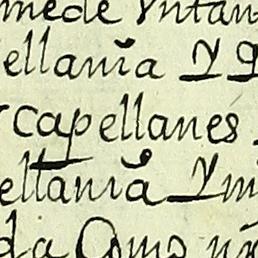 mede Yntan
ellania Y q
capellanes
ellania Ym
da Como nr̃